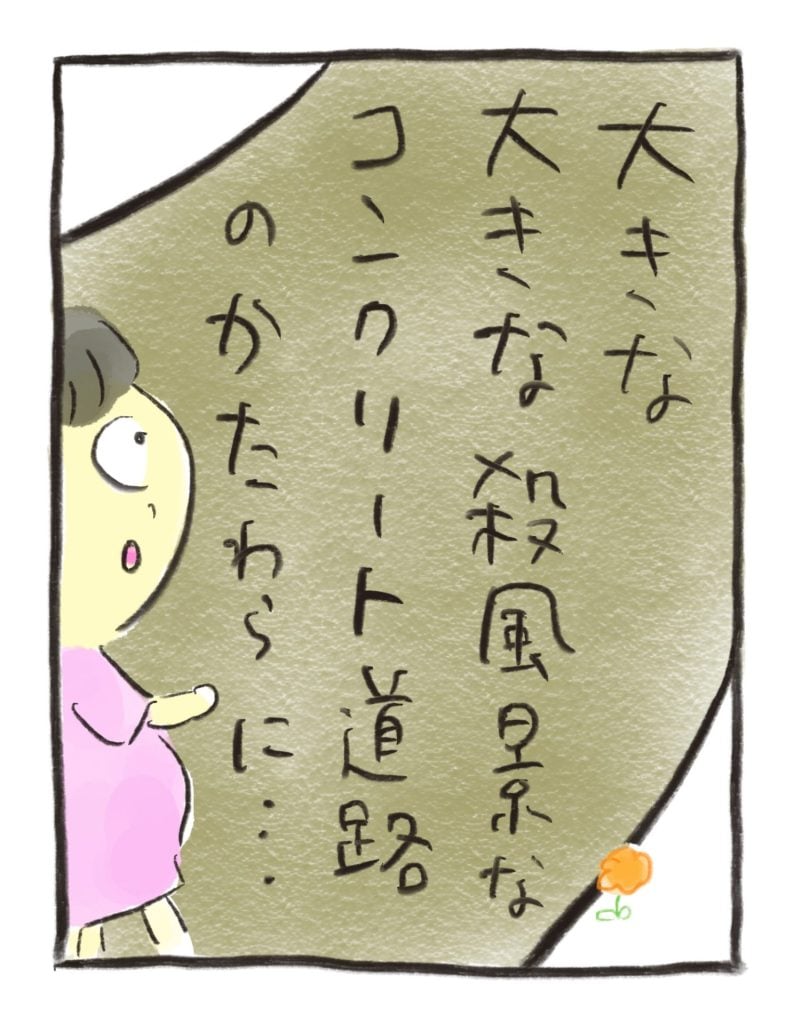 大きな
大きな殺風景な
コンクリート道路
のかたわらに…